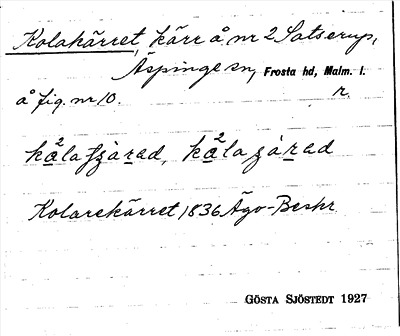 Kolakärret, kärr å nr 2 Satserup,
Äspinge sn, Frosta hd, Malm. l.
å fig. nr 10. r.
Kolarekärret 1836 Ägo-Beskr
GÖSTA SJÖSTEDT 1927